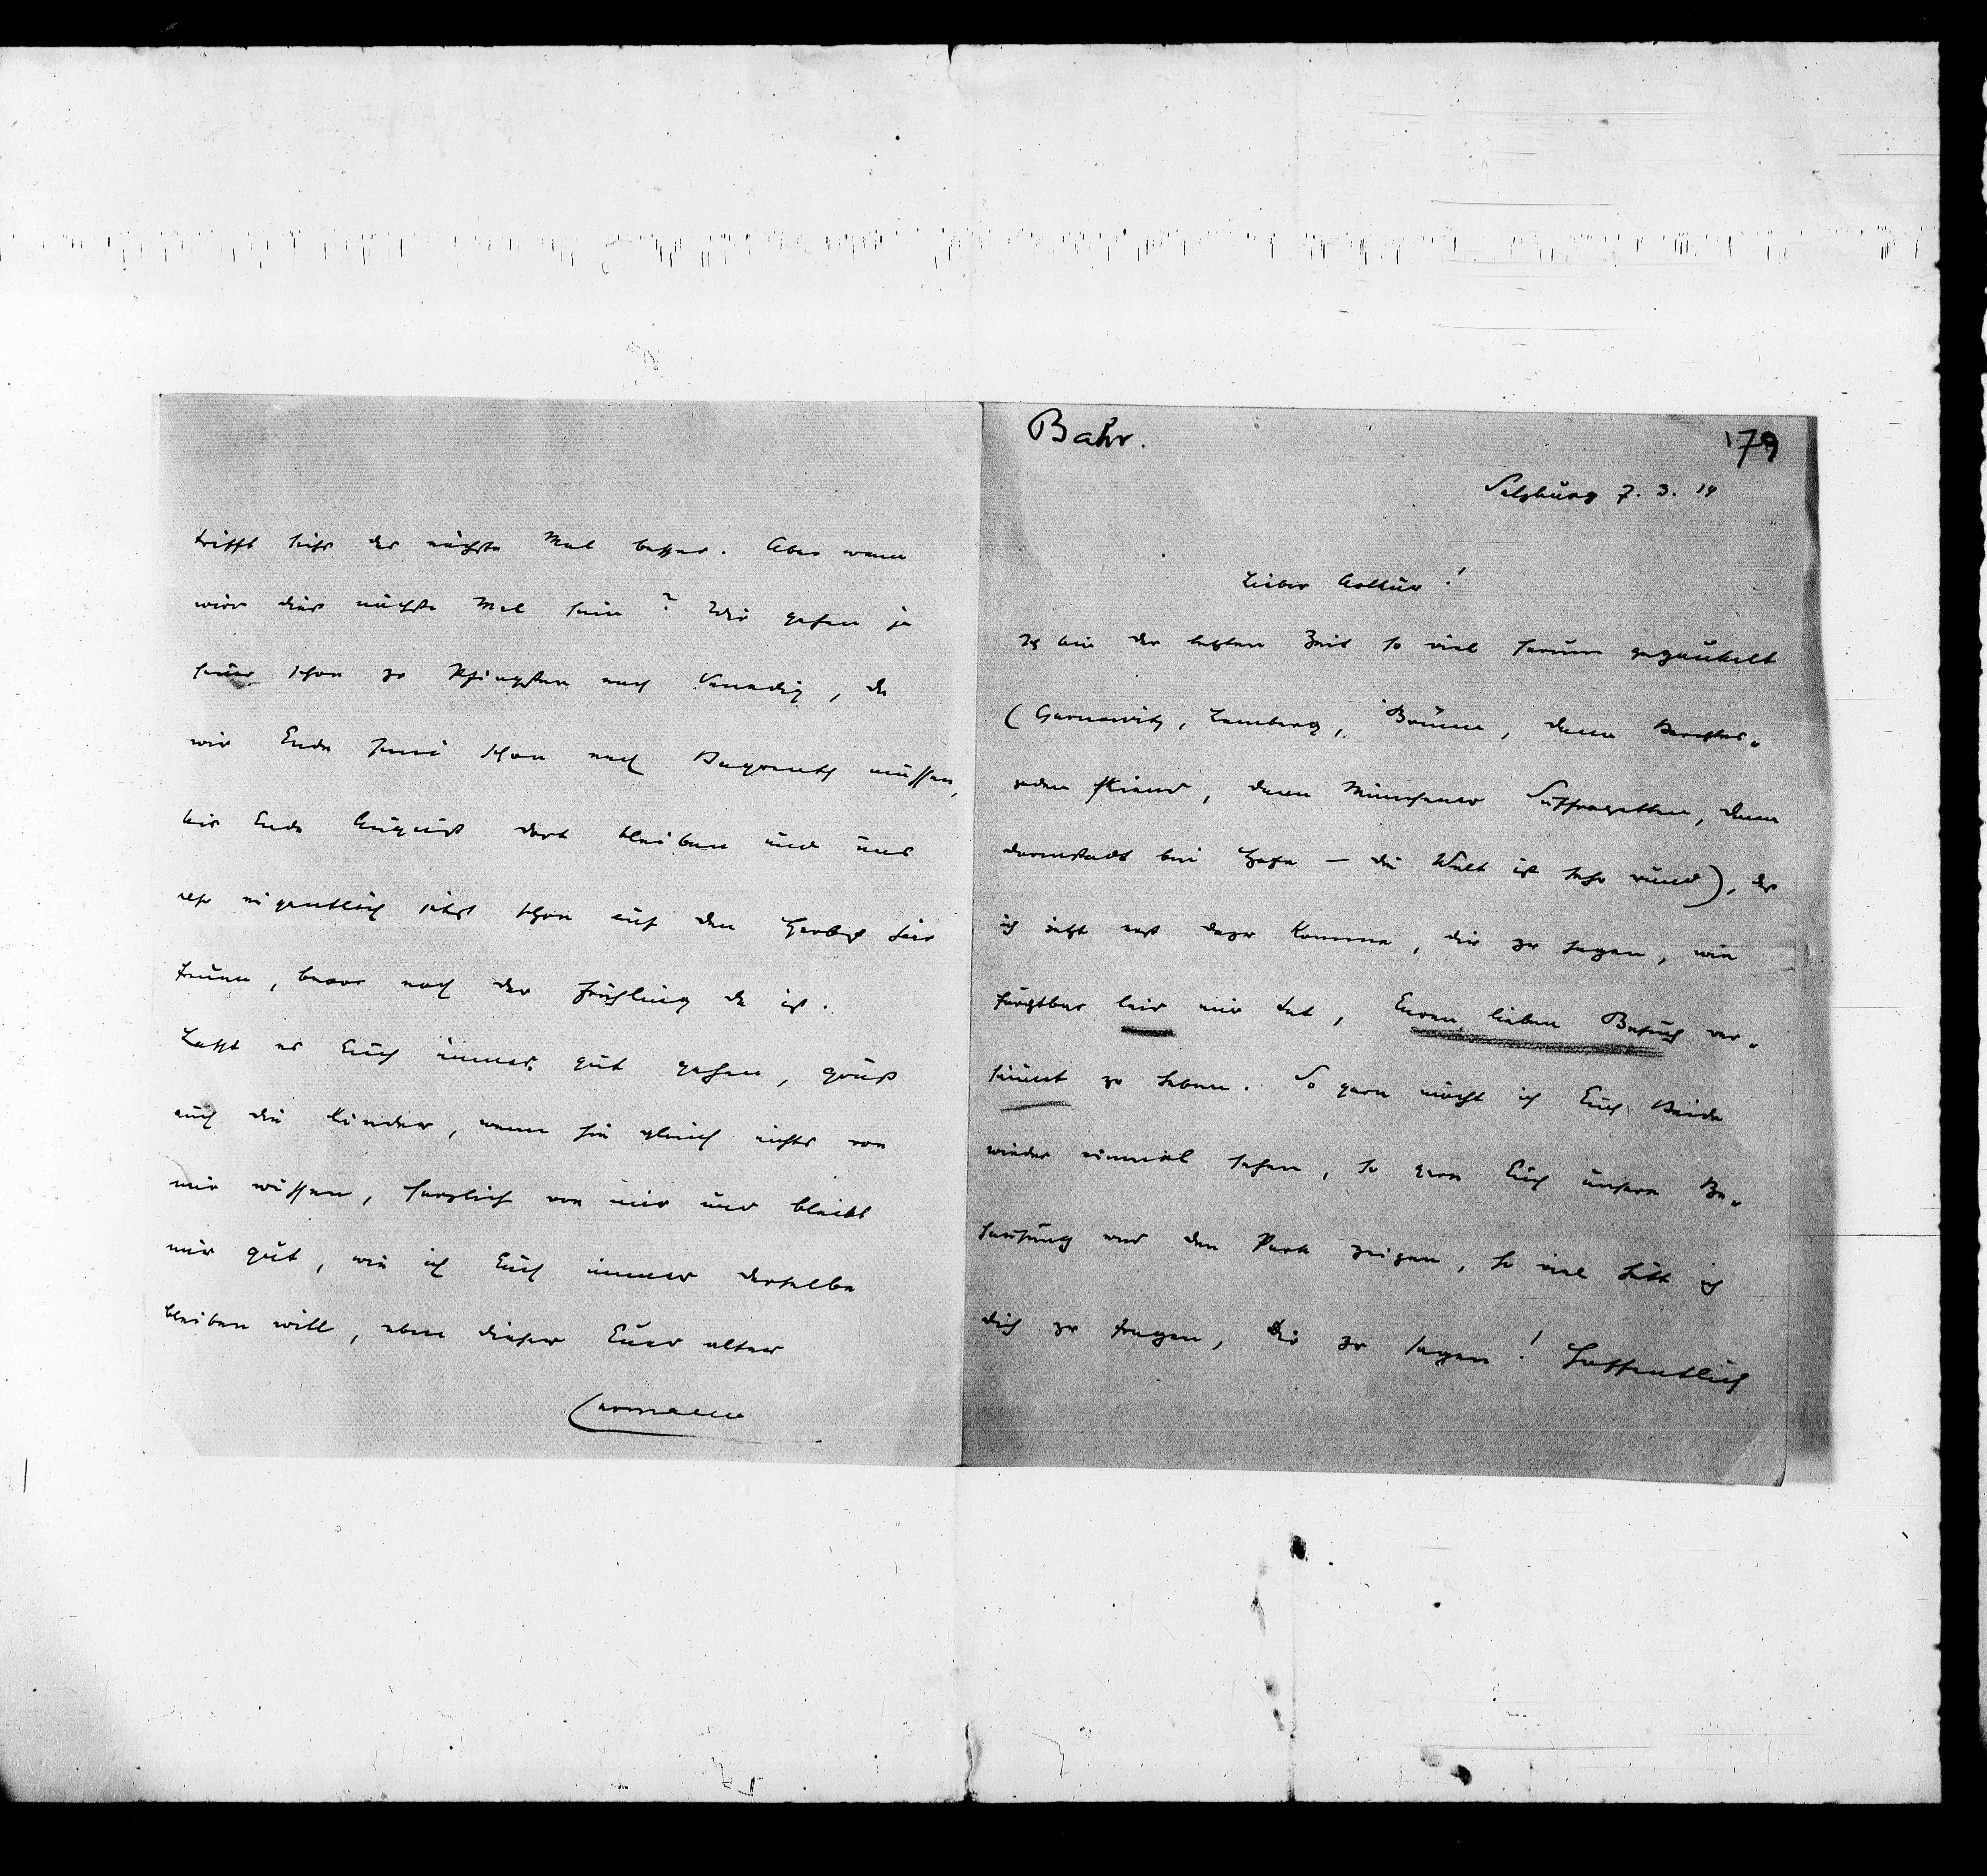 Bahr.
179
Salzburg 7. 3. 14
Lieber Arthur!
Ich bin der letzten Zeit so viel herum gegaukelt
(Czernowitz, Lemberg, Brünn, dann Berchtes-
gaden skiend, dann Münchener Suffragetten, dann
Darmstadt bei Hofe — die Welt ist sehr rund), daß
ich jetzt erst dazu komme, dir zu sagen, wie
furchtbar leid mir tut, Euren lieben Besuch ver-
säumt zu haben. So gern möcht ich Euch Beide
wieder einmal sehen, so gern Euch unsere Be-
hausung und den Park zeigen, so viel hätt ich
dich zu fragen, dir zu sagen! Hoffentlich
trifft sichs das nächste Mal besser. Aber wann
wird dies nächste Mal sein? Wir gehen ja
heuer schon zu Pfingsten nach Venedig, da
wir Ende Juni schon nach Bayreuth müssen,
bis Ende August dort bleiben und uns
also eigentlich jetzt schon auf den Herbst hier
freuen, bevor noch der Frühling da ist.
Lasst es Euch immer gut gehen, grüß
auch die Kinder, wenn sie gleich nichts von
mir wissen, herzlich von mir und bleibt
mir gut, wie ich Euch immer derselbe
bleiben will, eben dieser Euer alter
Hermann